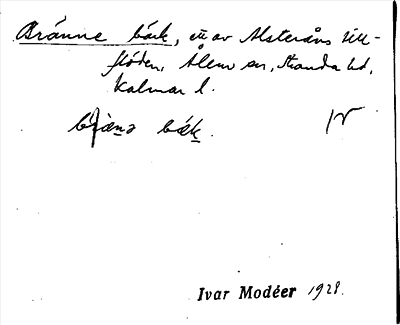 Bränne bäck, en av Alsteråns till-
flöden, Ålem sn, Handb. hd,
Kalmar l.
bränə bäk.
Ivar Modéer 1928.